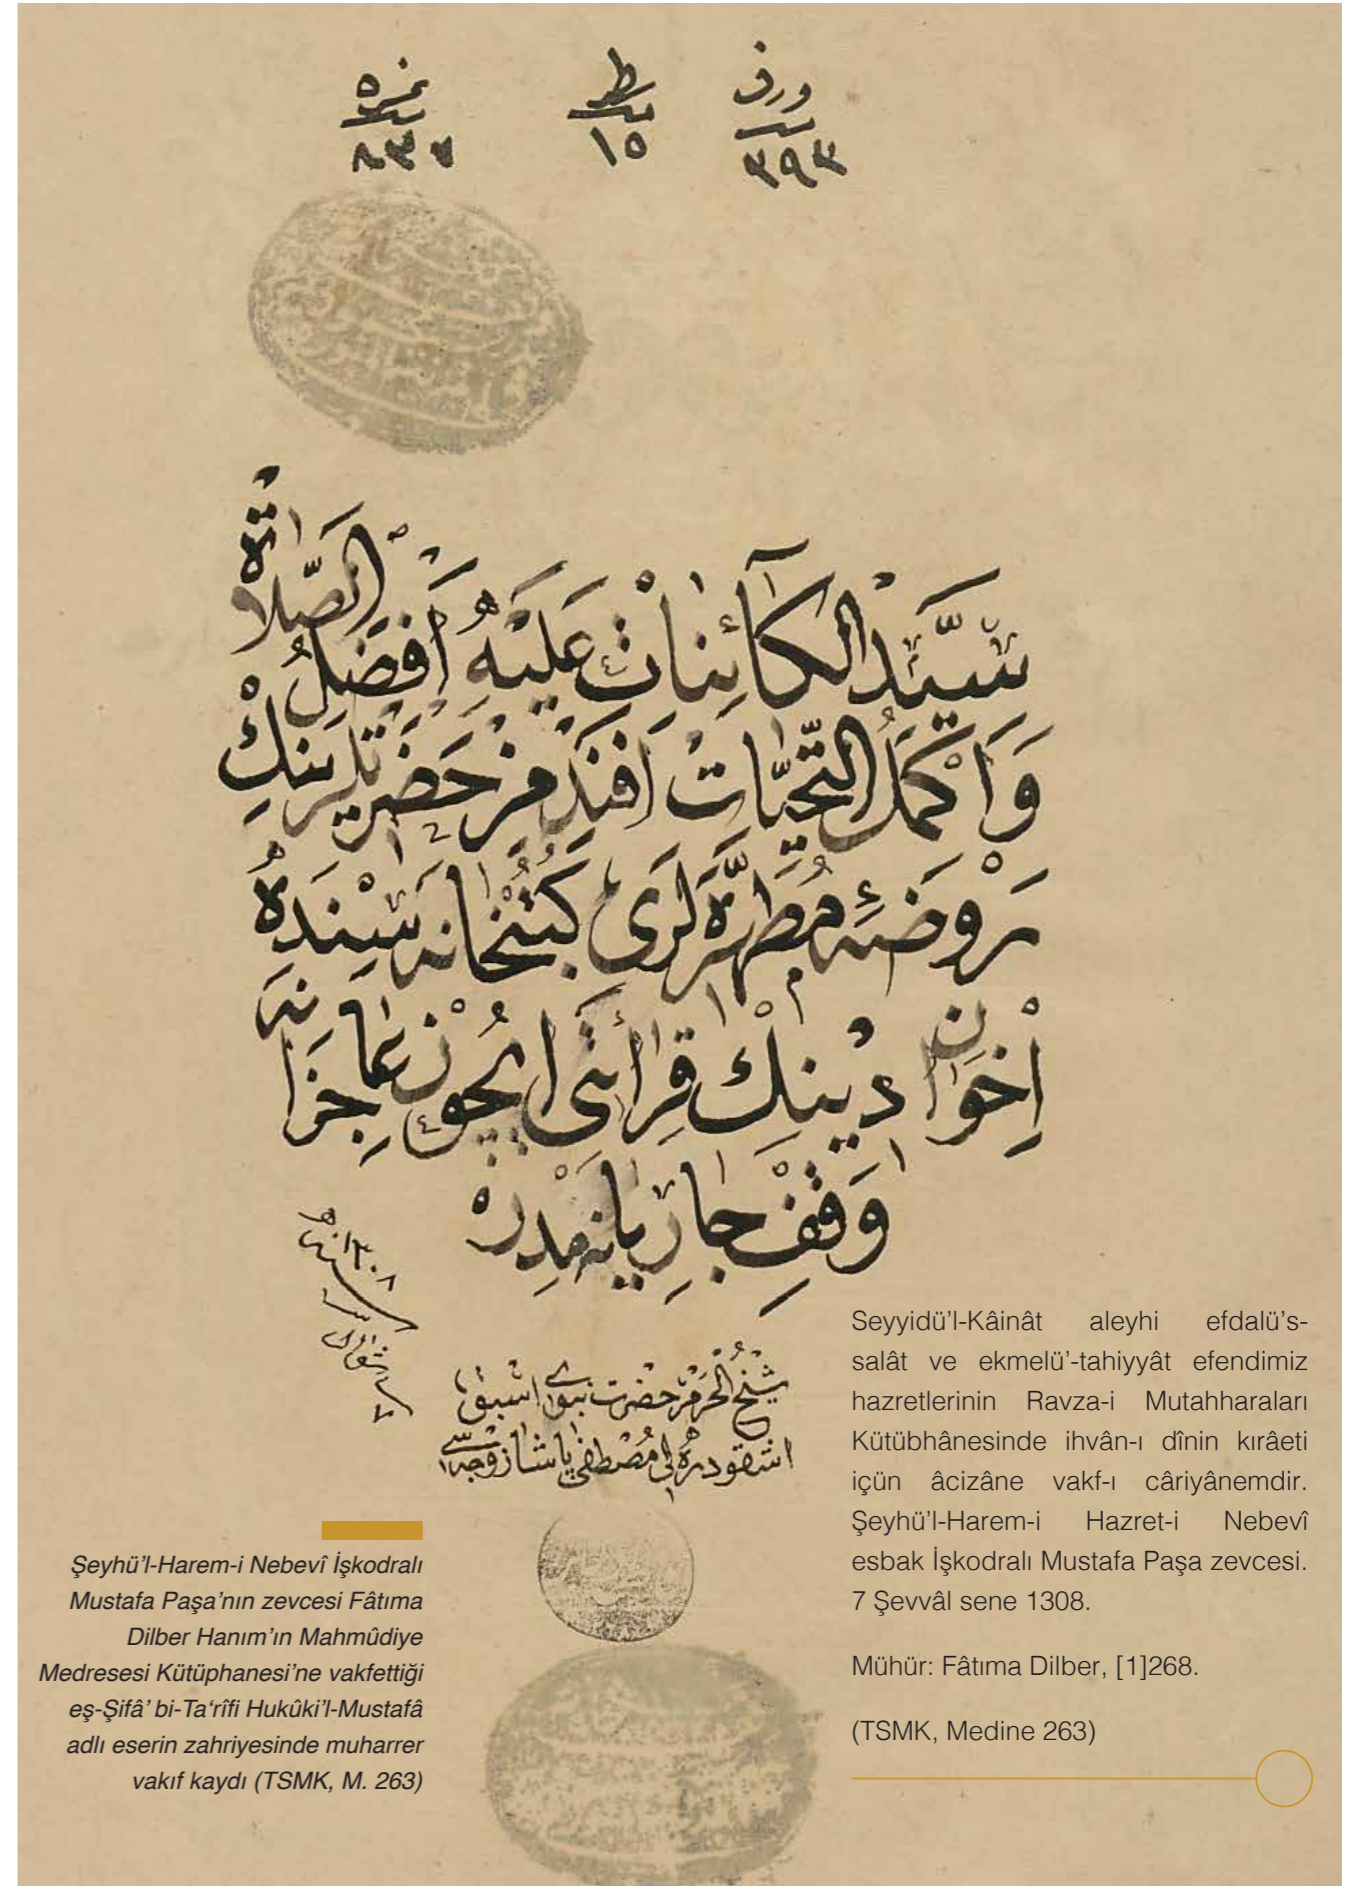 ورق سطر نمره
٣٩٣ ١٥
سَيِّدُ الكَآئِنَات عَلَيْهِ أَفْضَلُ الصَّلاة
وَاَكْمَلُ التَّحِيَّات اَفَنْدِمِزْ حَضْرَتْلَرِينِكْ
رَوْضَۀ مُطَهَّرَه لَرِى كُتُبْخَانَه سِنْدَه
اِخْوَان دِينِكْ قِرَائَتى اِيچُونْ عَاجِزَانَه
وَقْفِ جَارِيَانَه مدِرْ
شَيْخُ الْحَرَمِ حضرت نبوى اسبق
اشقودره لى مُصْطَفى پاشا زوجه سى
شوال سنه ١٣٠٨
Seyyidü’l-Kâinât aleyhi efdalü’s-
salât ve ekmelü’-tahiyyât efendimiz
hazretlerinin Ravza-i Mutahharaları
Kütübhânesinde ihvân-ı dînin kırâeti
içün âcizâne vakf-ı câriyânemdir.
Şeyhü’l-Harem-i Hazret-i Nebevî
esbak İşkodralı Mustafa Paşa zevcesi.
7 Şevvâl sene 1308.
Mühür: Fâtıma Dilber, [1]268.
(TSMK, Medine 263)
Şeyhü’l-Harem-i Nebevî İşkodralı
Mustafa Paşa’nın zevcesi Fâtıma
Dilber Hanım’ın Mahmûdiye
Medresesi Kütüphanesi’ne vakfettiği
eş-Şifâ’ bi-Ta‘rîfi Hukûki’l-Mustafâ
adlı eserin zahriyesinde muharrer
vakıf kaydı (TSMK, M. 263)